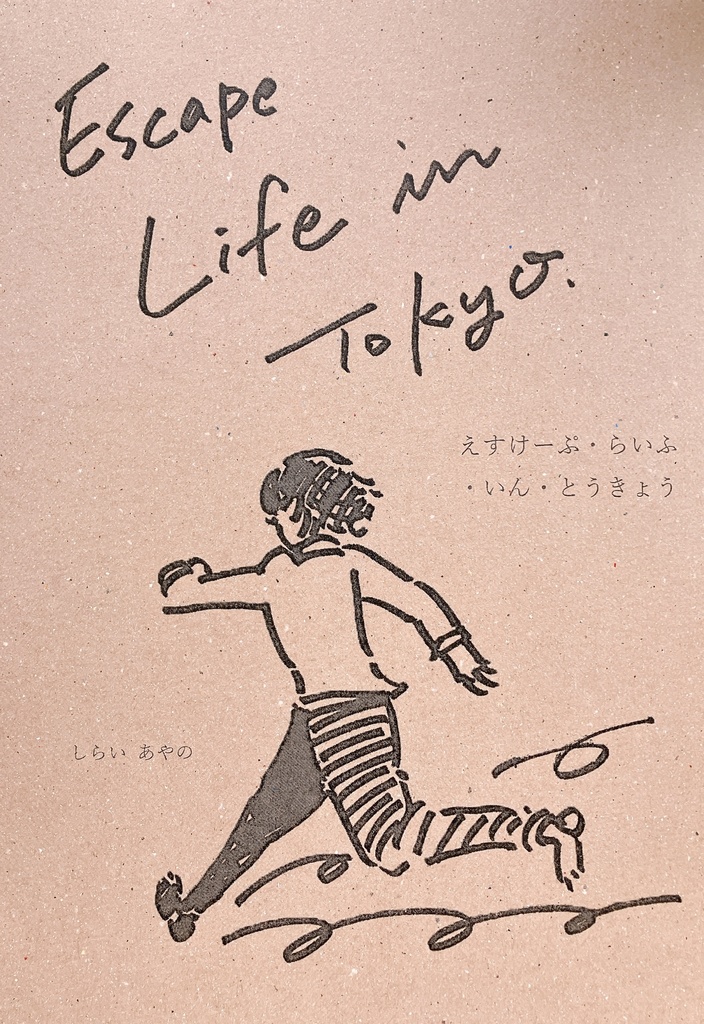 Escape
Life in
Tokyo.
えすけーぷ・らいふ
・いん・とうきょう
しらい あやの